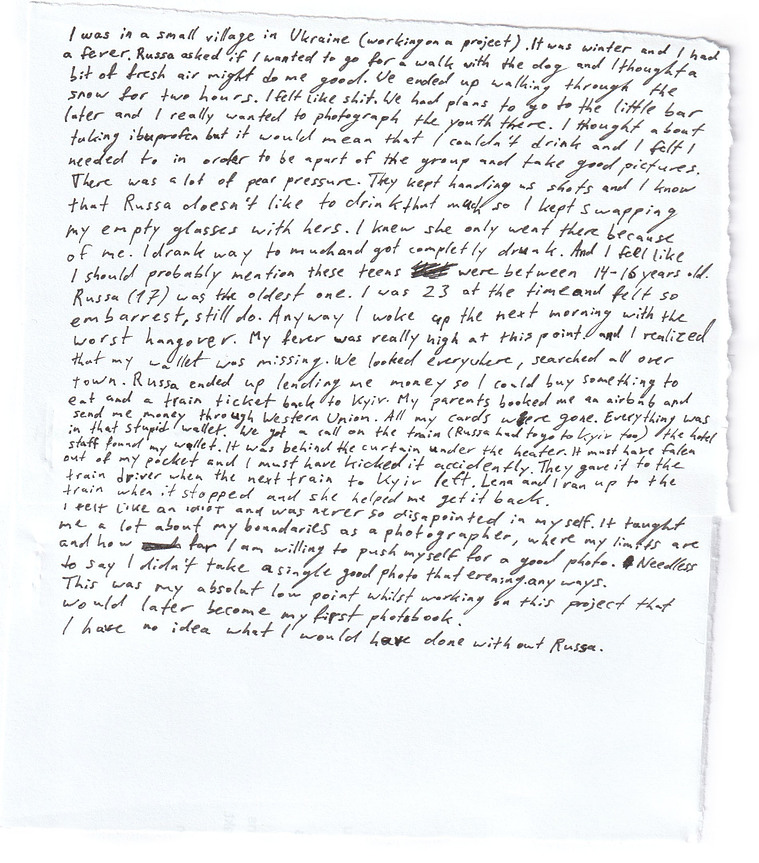 I was in a small village in Ukraine (working on a project). It was winter and I had
a fever. Russa asked if I wanted to go for a walk with the dog and I thought a
bit of fresh air might do me good. We ended up walking through the
snow for two hours. I felt like shit. We had plans to go to the little bar
later and I really wanted to photograph the youth there. I thought about
taking ibuprofen but it would mean that I couldn't drink and I felt I
needed to in order to be apart of the group and take good pictures.
There was a lot of pear pressure. They kept handing us shots and I know
that Russa doesn't like to drink that much so I kept swapping
my empty glasses with hers. I knew she only went there because
of me. I drank way to much and got completly drunk. And I feel like
I should probably mention these teens were between 14-16 years old.
Russa (17) was the oldest one. I was 23 at the time and felt so
embarrest, still do. Anyway I woke up the next morning with the
worst hangover. My fever was really high at this point. and I realized
that my wallet was missing. We looked everywhere, searched all over
town. Russa ended up lending me money so I could buy something to
eat and a train ticket back to Kyiv. My parents booked me an airbnb and
send me money through Western Union. All my cards were gone. Everything was
in that stupid wallet. We got a call on the train (Russa had to go to Kyiv too) the hotel
staff found my wallet. It was behind the curtain under the heater. It must have falen
out of my pocket and I must have kicked it accidently. They gave it to the
train driver when the next train to Kyiv left. Lena and I ran up to the
train when it stopped and she helped me get it back.
I felt like an idiot and was never so disapointed in my self. It taught
me a lot about my boundaries as a photographer, where my limits are
and how far I am willing to push myself for a good photo. Needless
to say I didn't take a single good photo that evening any ways.
This was my absolut low point whilst working on this project that
would later become my first photobook.
I have no idea what I would have done without Russa.